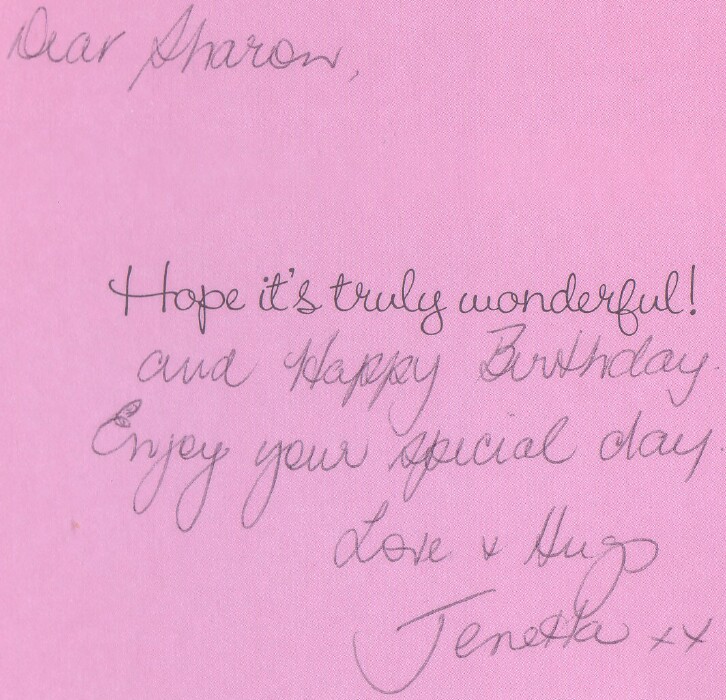 Dear Sharon,
Hope it's truly wonderful!
and Happy Birthday.
Enjoy your special day.
Love + Hugs
Jenetta xx